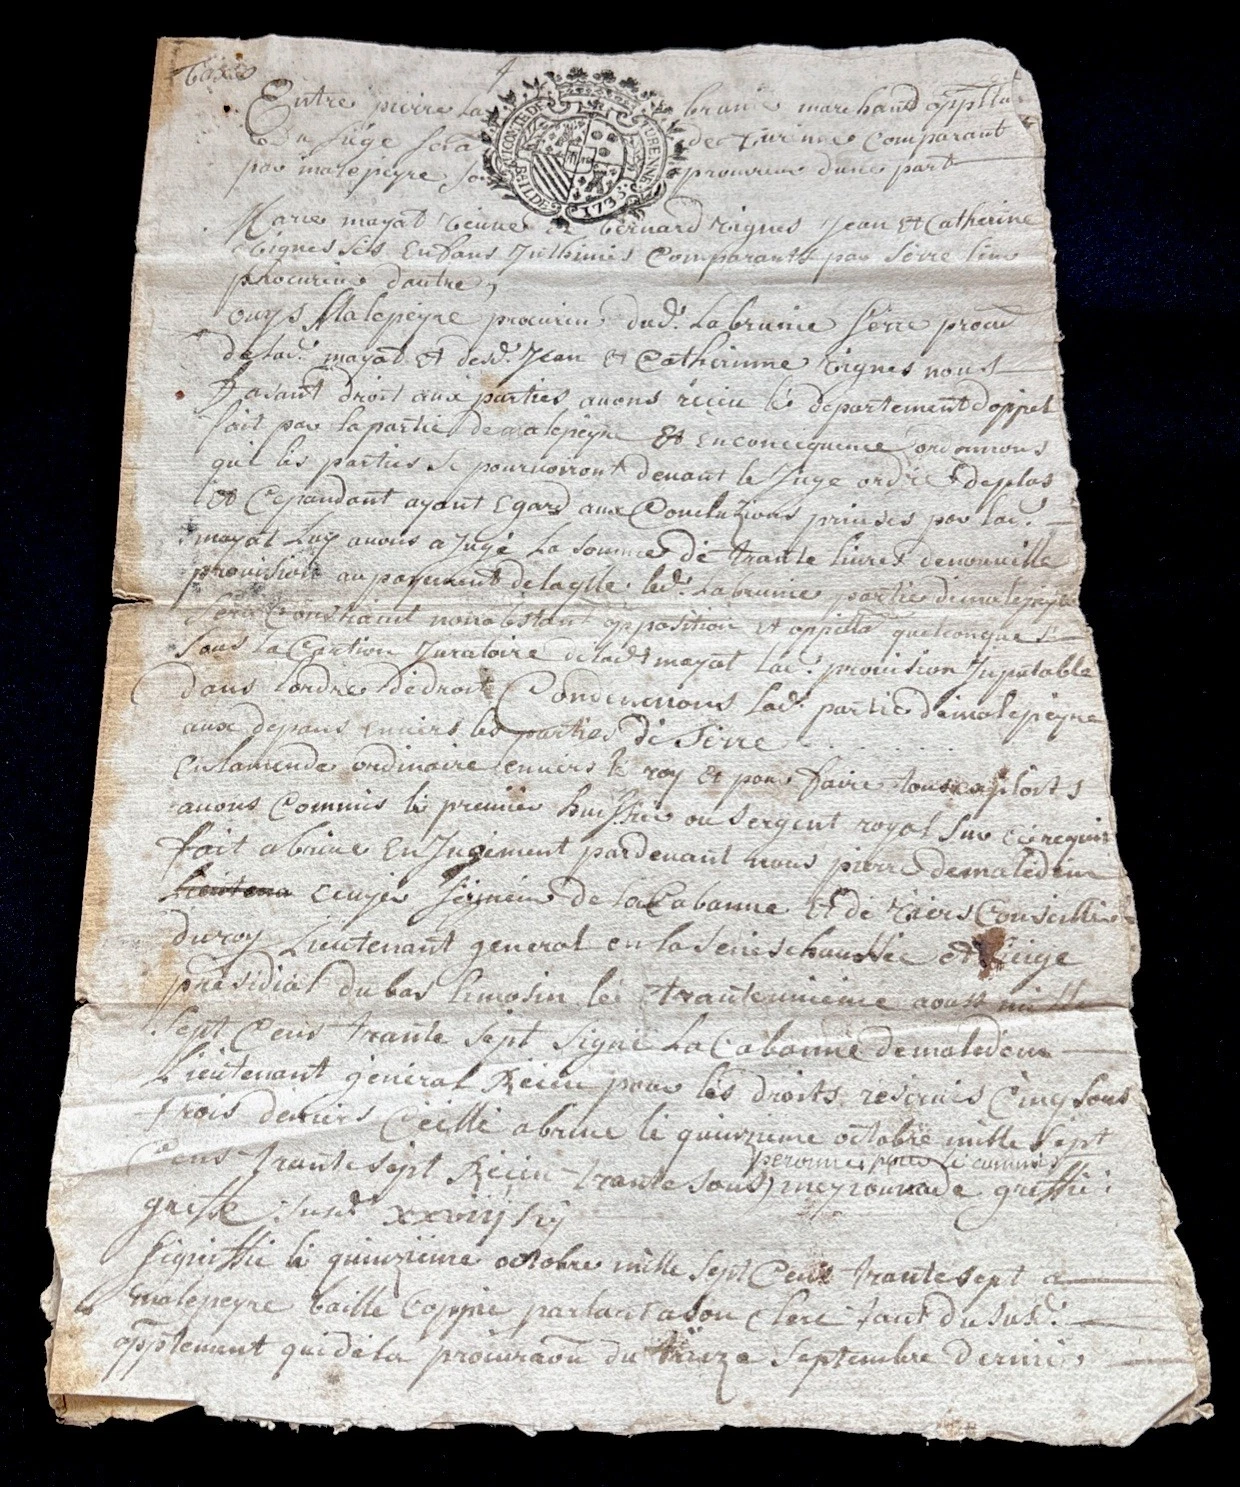 Entre pierre La brunie marchand appella
du Juge de Turenne Comparant
par malepeyre son procureur dune part
VICOMTE DE TURENNE
1735
Marie mayat veuve de bernard vignes Jean et Catherine
vignes ses enfans Comparants par serre leur
procureur dautre,
ouys Malepeyre procureur dud. Labrunie Serre procur
de lad. mayat et desd. Jean et Catherinne vignes nous
faisant droit aux parties avons reçeu le departement dappel
fait par la partie de malepeyre et en consequence ordonnons
que les parties se pourvoiront devant le Juge ordre
et cependant ayant Egard aux Concluzions prinses par lad.
mayat Luy avons ajugé La somme de trante livres de nouvelle
provision au payement de laqlle led. Labrunie partie de malepeyre
sera Constraint nonobstant opposition et appella quelconques
sous La Caution Juratoire de lad. mayat Lad. provision Inputable
dans Lordre de droit Condemnons lad. partie de malepeyre
aux depans envers les parties de Serre
en lamende ordinaire envers le roy et pour faire tous exploits
avons Commis le premier huissier ou sergent royal sur ce requis
fait a brive En Jugement pardevant nous pierre de maledent
ecuyer seigneur de la Cabanne et de Conseiller
du roy Lieutenant general en la seneschaussée et siege
presidial du bas limosin le trante unieme aoust mille
sept Cens trante sept signé La Cabanne de maledent
Lieutenant general Reçeu pour les droits reservés Cinq sous
trois deniers Scellé a brive le quinzieme octobre mille sept
Cens trante sept Reçeu trante sous greffier
peronne pour le commis
greffe
signiffié le quinzieme octobre mille sept Cens trante sept a
malepeyre baillé Coppie parlant a son Clerc tant du susd.
appztement que de la procuraon du treize septembre dernier